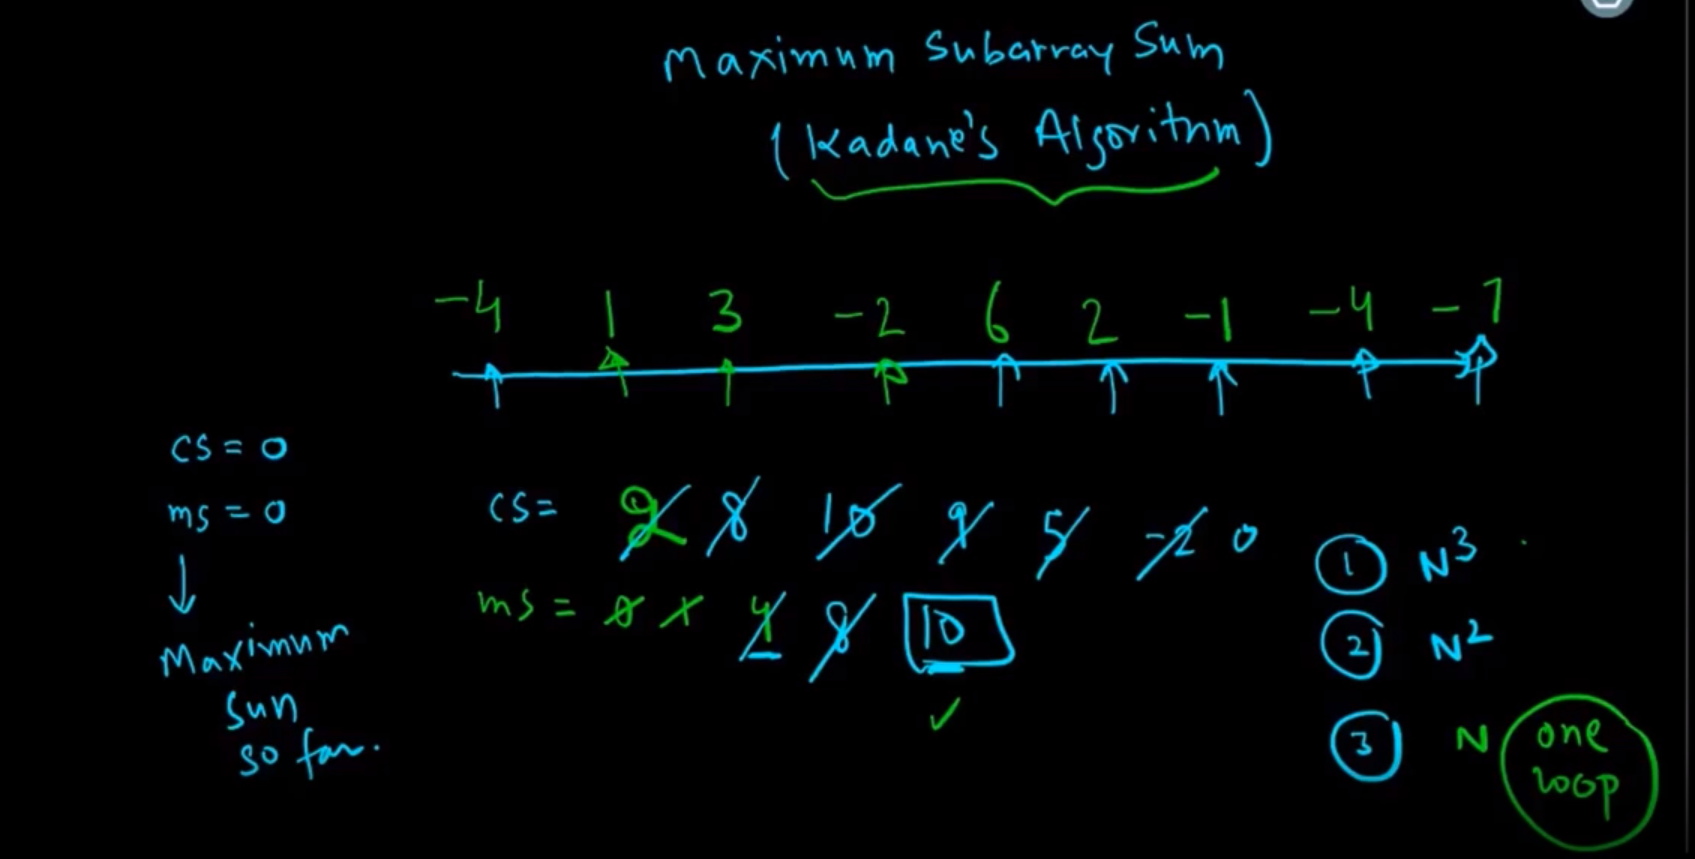 Maximum Subarray Sum
(Kadane's Algorithm)
-4 1 3 -2 6 2 -1 -4 -7
cs = 0
ms = 0
Maximum
Sum
so far.
cs = 2 8 10 9 5 -2 0
ms = 0 1 4 8 10
1 N³
2 N²
3 N one
loop